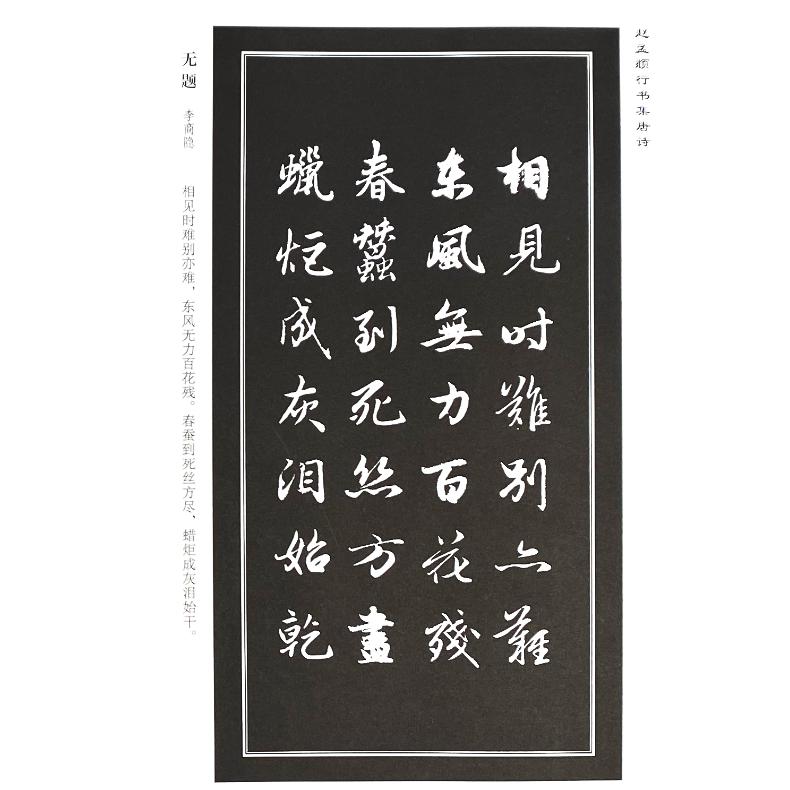 赵孟頫行书集唐诗
相見时難别亦難
东風無力百花殘
春蠶到死丝方盡
蠟炬成灰泪始乾
无题
李商隐
相见时难别亦难，东风无力百花残。春蚕到死丝方尽、蜡炬成灰泪始干。